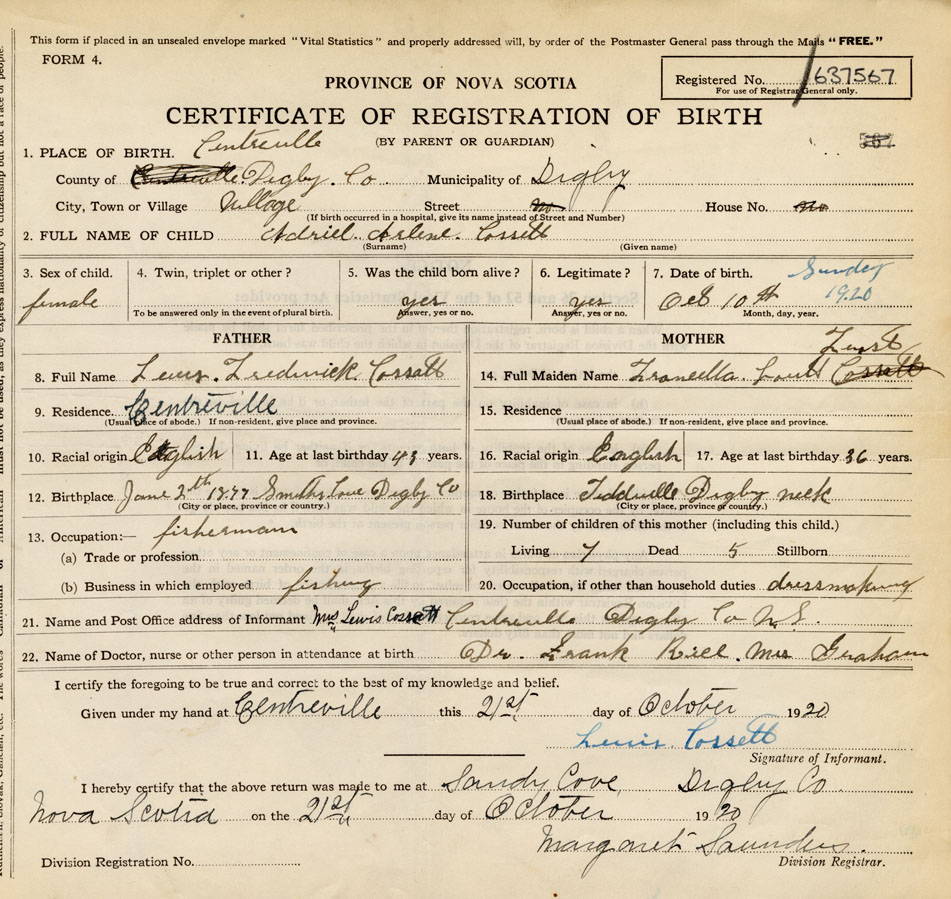 This form if placed in an unsealed envelope marked "Vital Statistics" and properly addressed will, by order of the Postmaster General pass through the Mails "FREE."
FORM 4.
PROVINCE OF NOVA SCOTIA
Registered No. 637567
For use of Registrar General only.
CERTIFICATE OF REGISTRATION OF BIRTH
(BY PARENT OR GUARDIAN)
1. PLACE OF BIRTH. Centreville
County of Centreville Digby. Co Municipality of Digby
City, Town or Village Village Street no House No. no
(If birth occurred in a hospital, give its name instead of Street and Number)
2. FULL NAME OF CHILD Adriel. Arlene. Cossett
(Surname) (Given name)
3. Sex of child. 4. Twin, triplet or other? 5. Was the child born alive? 6. Legitimate? 7. Date of birth. Sunday
female yes yes Oct 10th 1920
To be answered only in the event of plural birth. Answer, yes or no. Answer, yes or no. Month, day, year.
FATHER
8. Full Name Lewis. Fredrick. Cossett
9. Residence. Centreville
(Usual place of abode.) If non-resident, give place and province.
10. Racial origin English 11. Age at last birthday 43 years.
12. Birthplace June 2th 1877 Smiths Cove Digby Co
(City or place, province or country.)
13. Occupation:— fisherman
(a) Trade or profession
(b) Business in which employed fishing
MOTHER
14. Full Maiden Name Cossett
15. Residence
(Usual place of abode.) If non-resident, give place and province.
16. Racial origin English 17. Age at last birthday 36 years.
18. Birthplace Tiddville Digby neck
(City or place, province or country.)
19. Number of children of this mother (including this child.)
Living 7 Dead 5 Stillborn
20. Occupation, if other than household duties dressmaking
21. Name and Post Office address of Informant Mrs Lewis Cossett Centreville Digby Co N.S.
22. Name of Doctor, nurse or other person in attendance at birth Dr. Frank Rice. Mrs Graham
I certify the foregoing to be true and correct to the best of my knowledge and belief.
Given under my hand at Centreville this 21st day of October 1920
Lewis Cossett
Signature of Informant.
I hereby certify that the above return was made to me at Sandy Cove, Digby Co
Nova Scotia on the 21st day of October 1920
Margaret Saunders.
Division Registration No. Division Registrar.